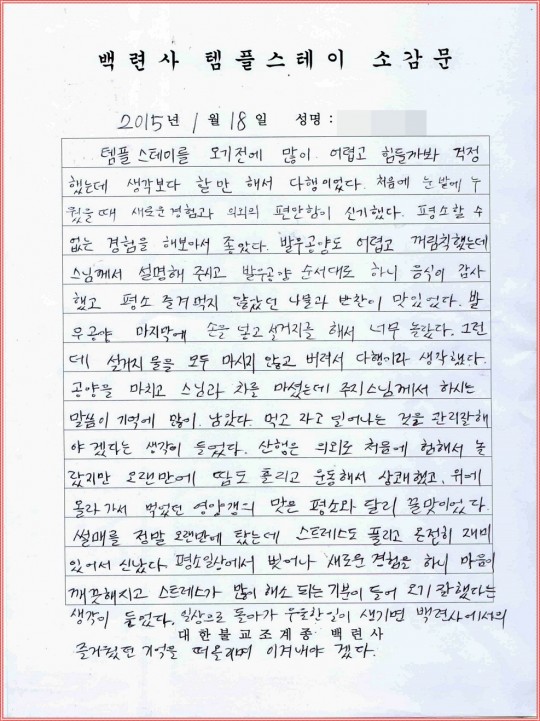 백련사 템플스테이 소감문
2015년 1월 18일 성명 :
템플스테이를 오기전에 많이 어렵고 힘들까봐 걱정
했는데 생각보다 할만 해서 다행이었다. 처음에 눈밭에 누
웠을때 새로운경험과 의외의 편안함이 신기했다. 평소할 수
없는 경험을 해보아서 좋았다. 발우공양도 어렵고 꺼림칙했는데
스님께서 설명해 주시고 발우공양 순서대로 하니 음식이 감사
했고 평소 즐겨먹지 않았던 나물과 반찬이 맛있었다. 발
우공양 마지막에 손을 넣고 설거지를 해서 너무 놀랐다. 그런
데 설거지 물을 모두 마시지 않고 버려서 다행이라 생각했다.
공양을 마치고 스님과 차를 마셨는데 주지스님께서 하시는
말씀이 기억에 많이 남았다. 먹고 자고 일어나는 것을 관리잘해
야 겠다는 생각이 들었다. 산행은 의외로 처음에 험해서 놀
랐지만 오랜만에 땀도 흘리고 운동해서 상쾌했고, 위에
올라가서 먹었던 영양갱의 맛은 평소와 달리 꿀맛이었다.
썰매를 정말 오랜만에 탔는데 스트레스도 풀리고 온전히 재미
있어서 신났다. 평소일상에서 벗어나 새로운 경험을 하니 마음이
깨끗해지고 스트레스가 많이 해소 되는기분이 들어 오기 잘했다는
생각이 들었다. 일상으로 돌아가 우울한일이 생기면 백련사에서의
대한불교조계종 백련사
즐거웠던 기억을 떠올리며 이겨내야 겠다.